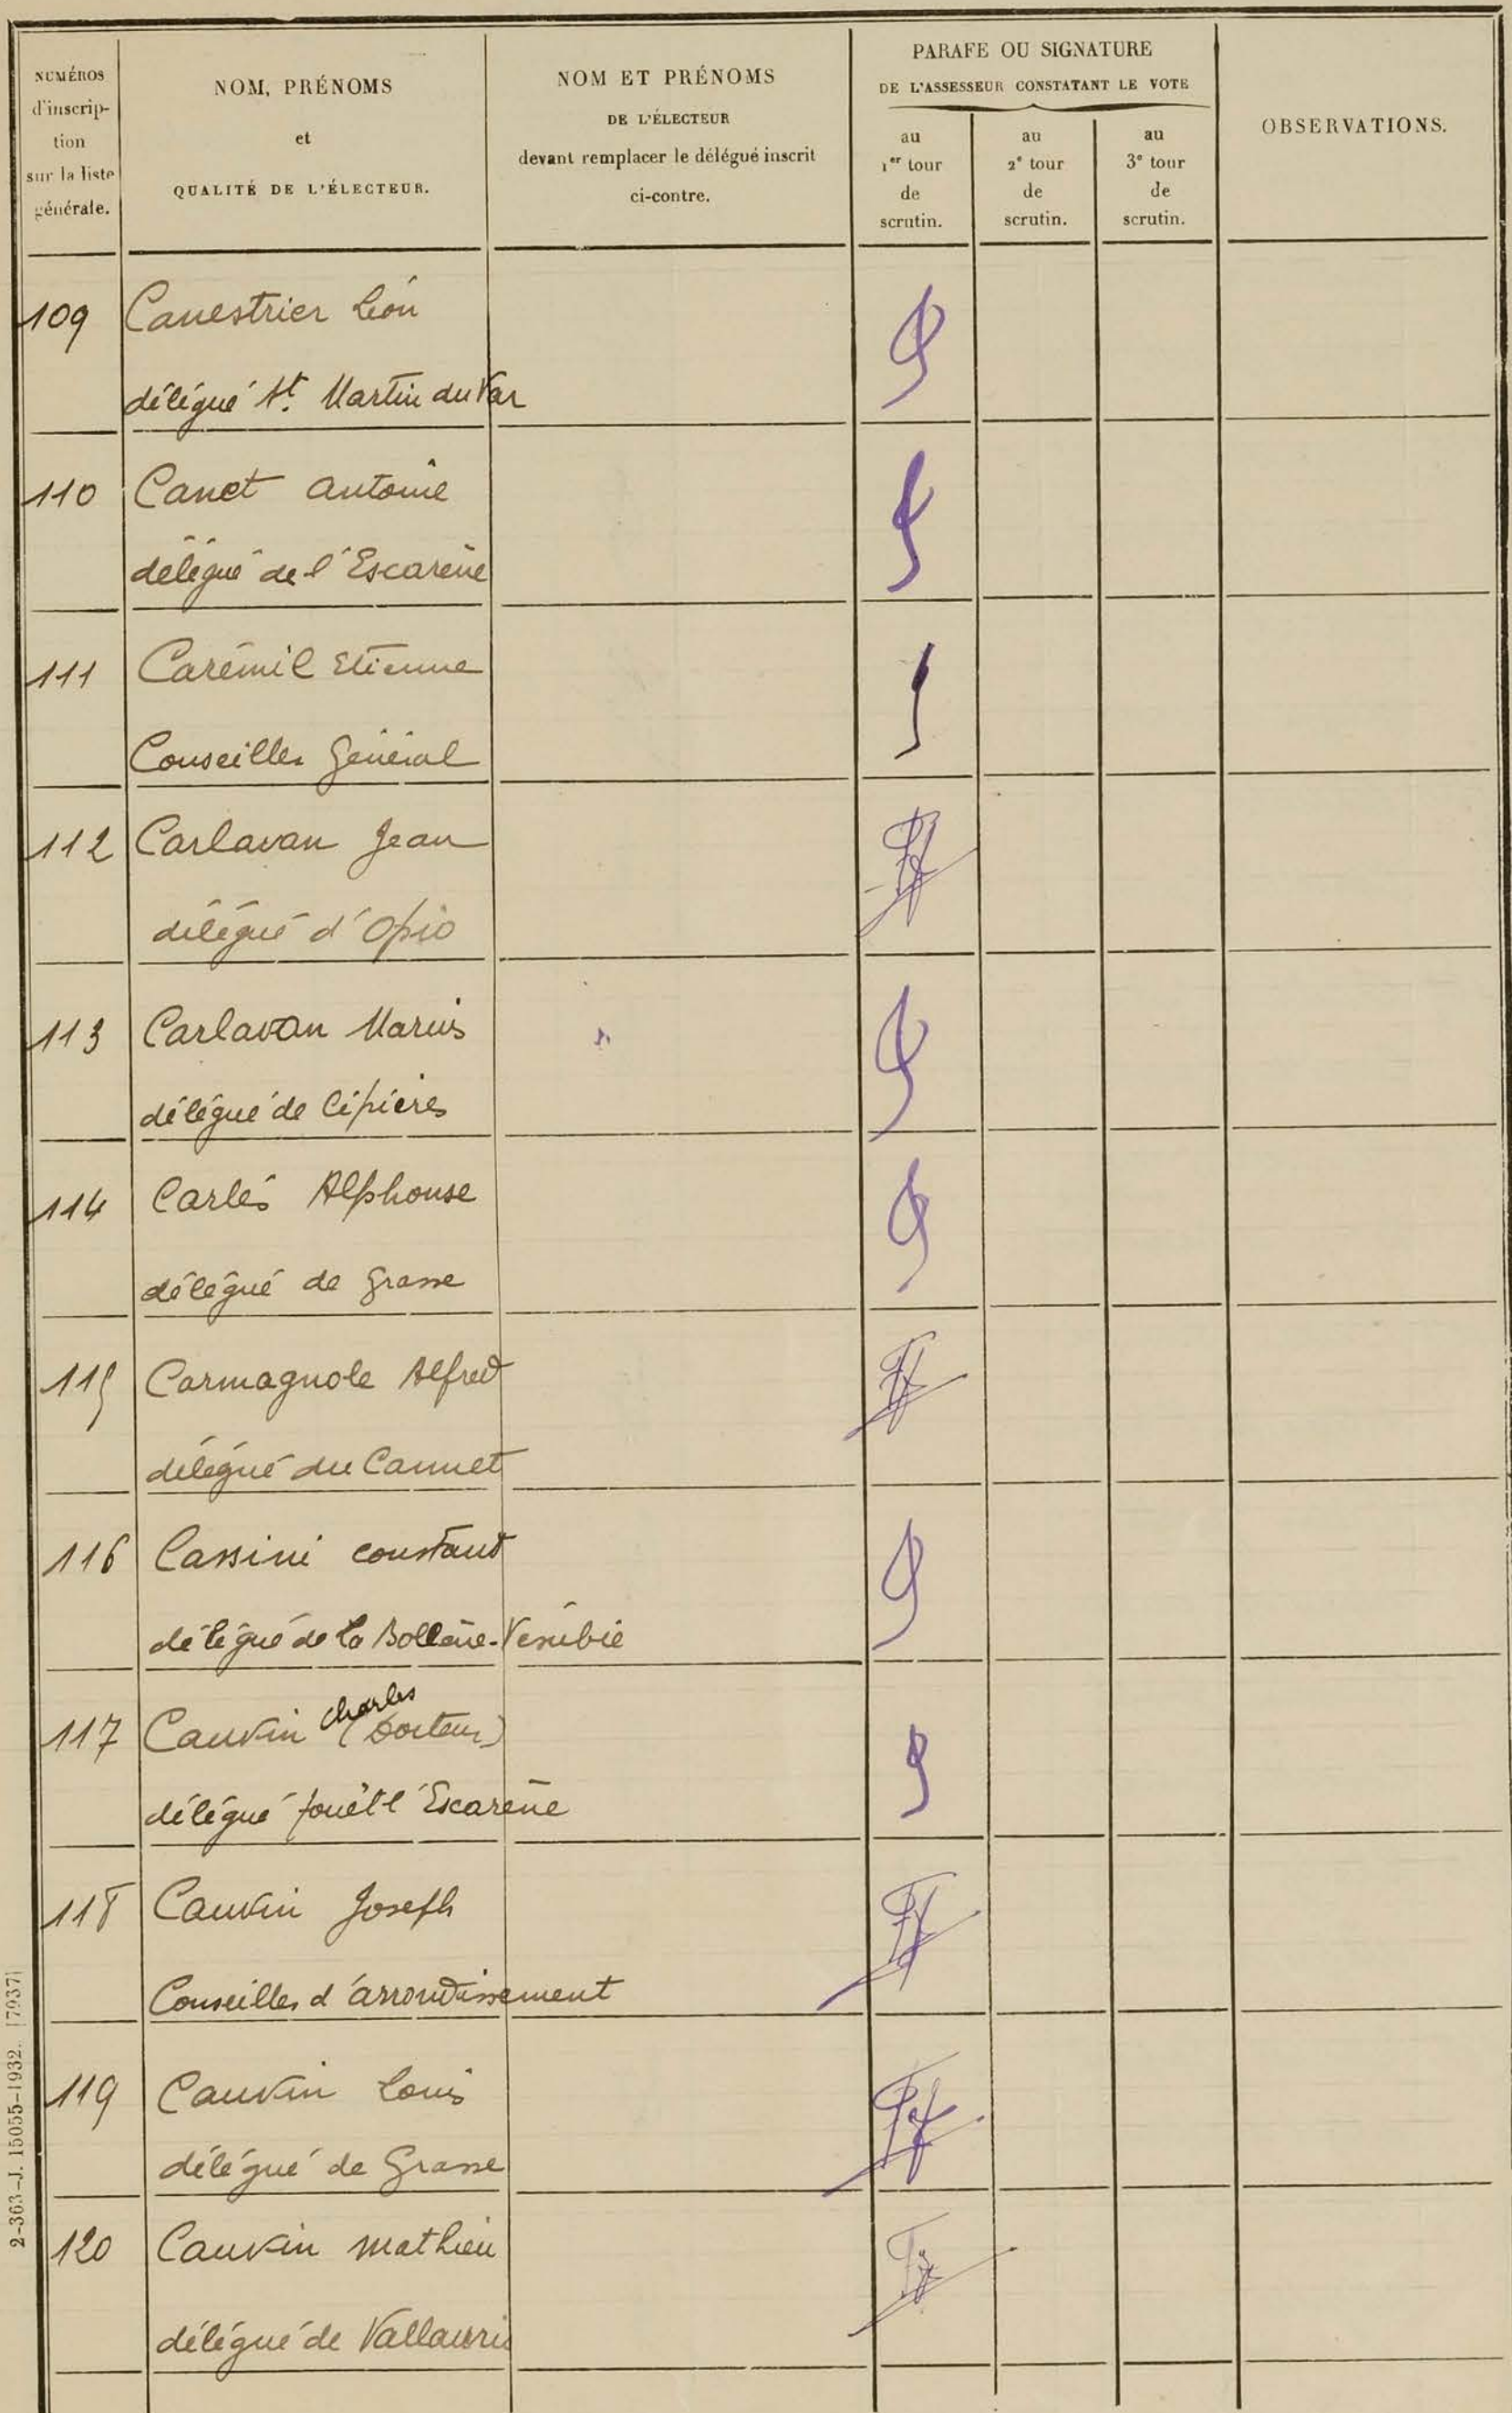 NUMÉROS
d'inscrip-
tion
sur la liste
générale.
NOM, PRÉNOMS
et
QUALITÉ DE L'ÉLECTEUR.
NOM ET PRÉNOMS
DE L'ÉLECTEUR
devant remplacer le délégué inscrit
ci-contre.
PARAFE OU SIGNATURE
DE L'ASSESSEUR CONSTATANT LE VOTE
au
1er tour
de
scrutin.
au
2e tour
de
scrutin.
au
3e tour
de
scrutin.
OBSERVATIONS.
109 Canestrier Léon
délégué St. Martin du Var
110 Canet Antoine
délégué de l'Escarène
111 Carémil Etienne
Conseiller Général
112 Carlavan Jean
délégué d'Opio
113 Carlavan Marius
délégué de Cipières
114 Carlès Alphonse
délégué de Grasse
115 Carmagnole Alfred
délégué du Cannet
116 Cassini constant
délégué de la Bollène-Vésubie
117 Cauvin Charles (Docteur)
délégué Touët l'Escarène
118 Cauvin Joseph
Conseiller d'arrondissement
119 Cauvin Louis
délégué de Grasse
120 Cauvin Mathieu
délégué de Vallauris
2-363-J. 15055-1932. [7937]